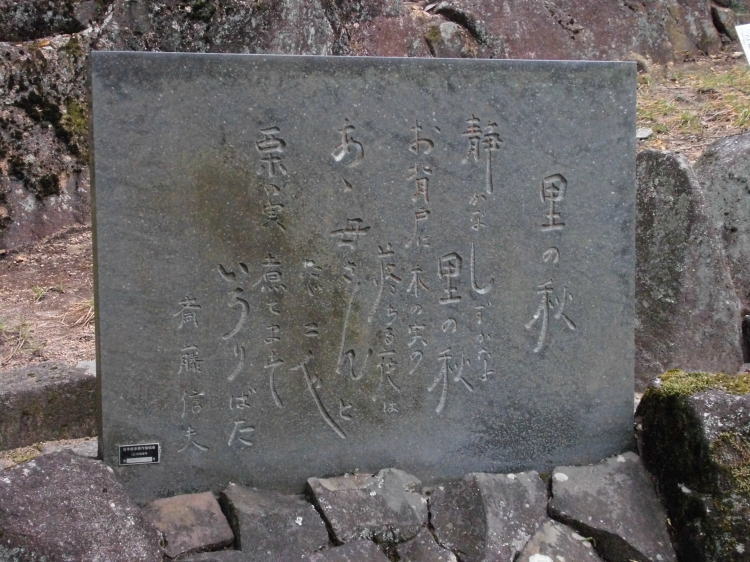 里の秋
静かな しずかな
里の秋
お背戸に 木の実の
落ちる夜は
あゝ 母さんと
たゞ二人
栗の実 煮てます
いろりばた
斎藤信夫